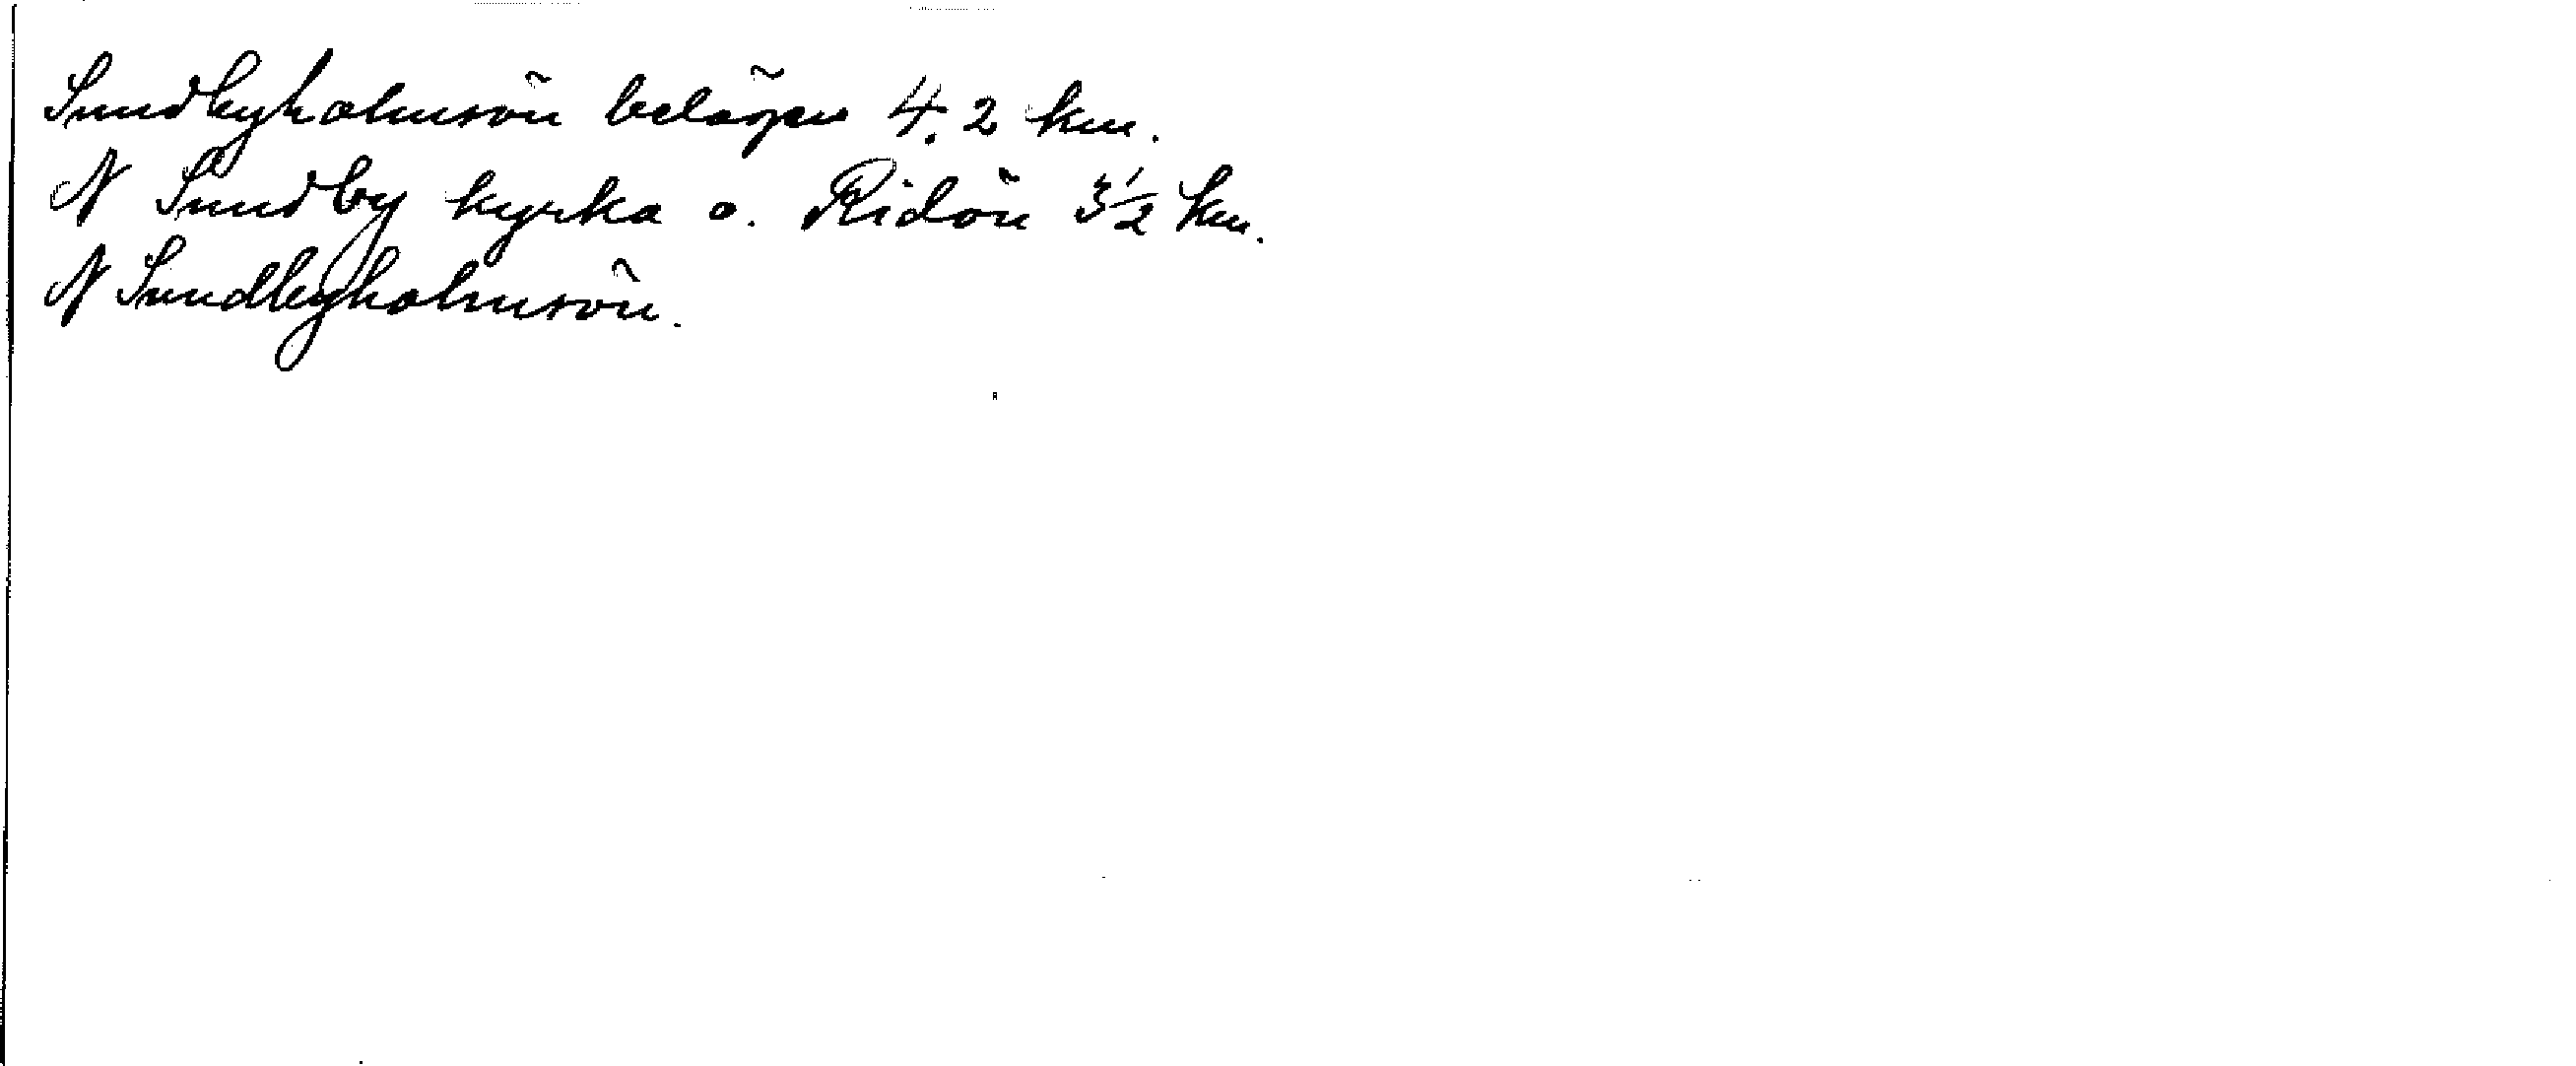 Sundbyholmsön belägen 4.2 km.
N Sundby kyrka o. Ridön 3½ km.
N Sundbyholmsön.